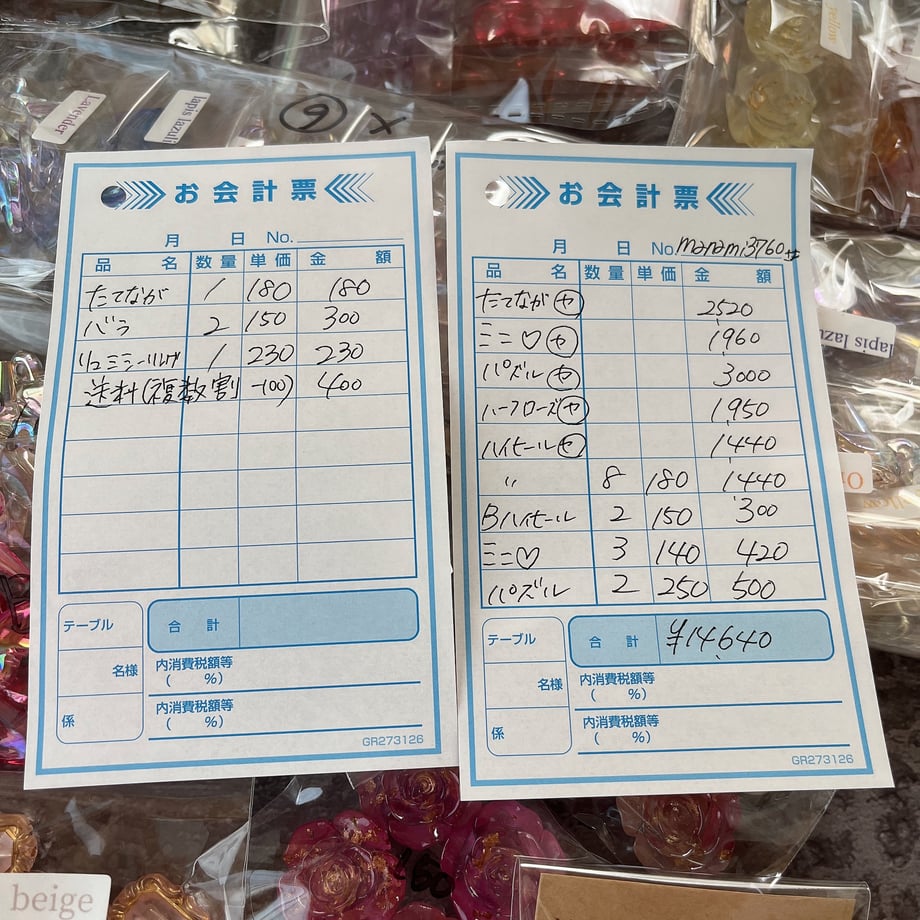 Lavender
lapis lazuli
yellow
6 ×
お会計票
月 日 No.
品名 数量 単価 金額
たてなが 1 180 180
バラ 2 150 300
1 230 230
送料(複数割 -100) 400
テーブル
合計
名様
内消費税額等
( %)
係
内消費税額等
( %)
GR273126
お会計票
月 日 No.manami3760サ
品名 数量 単価 金額
たてなが ヤ 2520
ミニ♡ ヤ 1960
パズル ヤ 3000
ハーフローズ ヤ 1950
ハイヒール ヤ 1440
〃 8 180 1440
Bハイヒール 2 150 300
ミニ♡ 3 140 420
パズル 2 250 500
テーブル
合計 ¥14640
名様
内消費税額等
( %)
係
内消費税額等
( %)
GR273126
lapis lazu
beige